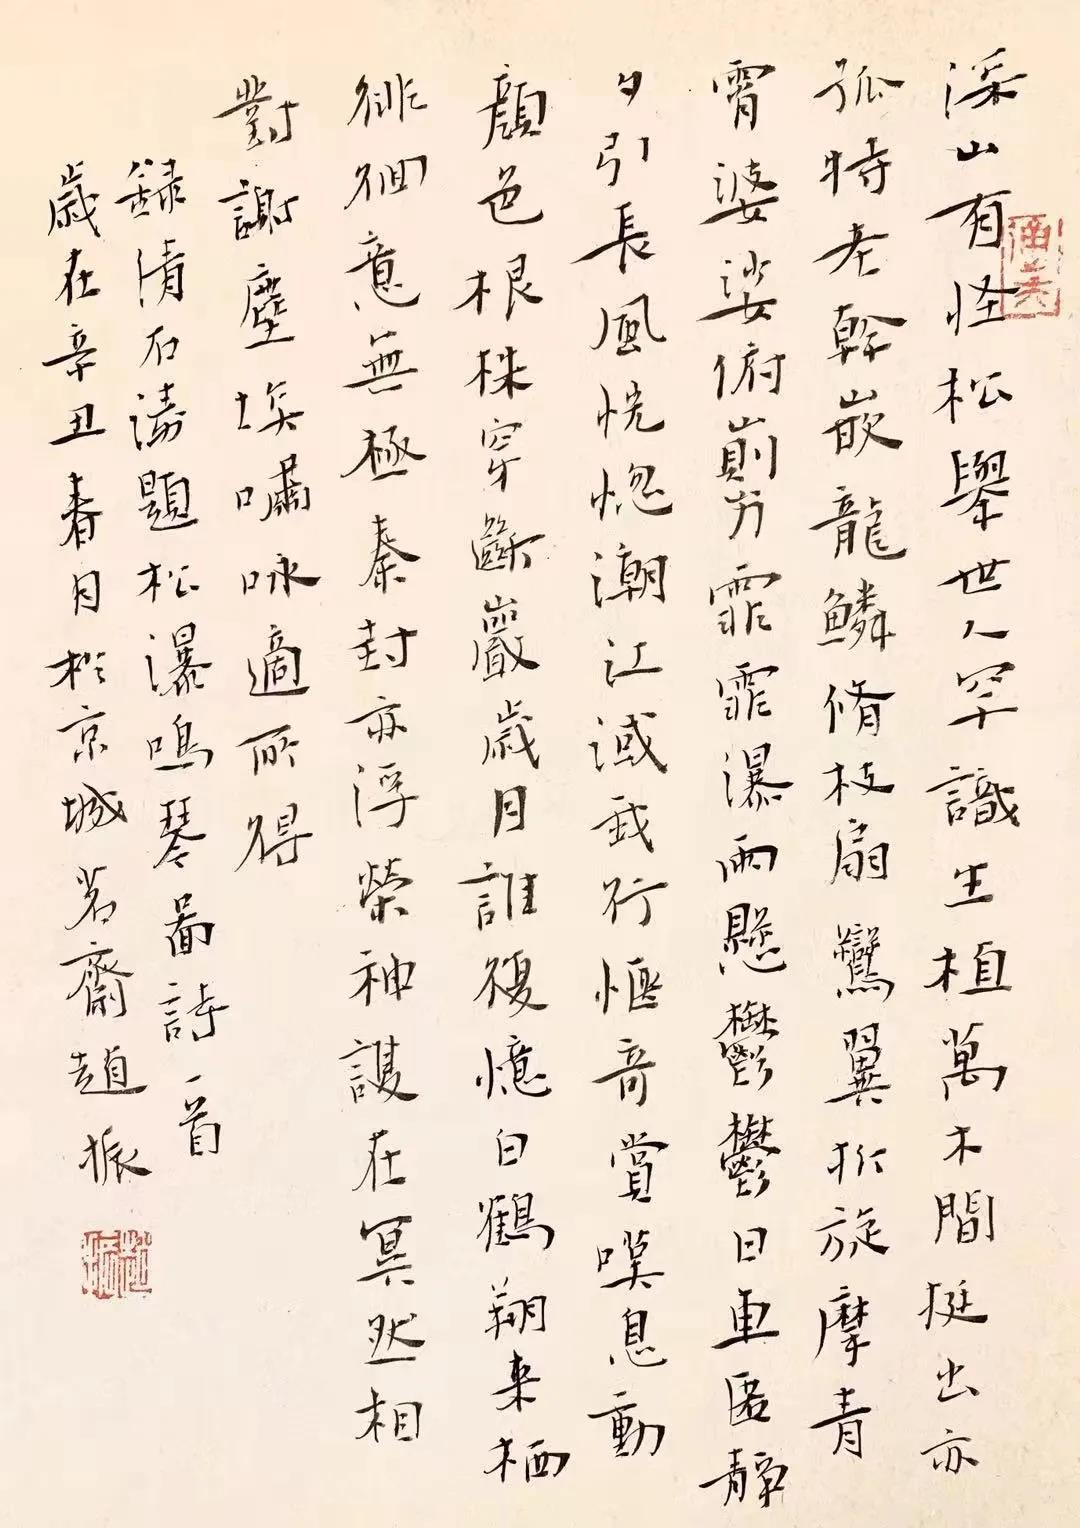 深山有怪松舉世人罕識生植萬木間挺出亦
孤特老幹嵌龍鱗脩枝扇鸞翼於旋摩青
霄婆娑俯崱屴霏霏瀑雨懸鬱鬱日車匿靜
夕引長風恍惚潮江減我行愜奇賞嘆息動
顏色根株穿斷巖歲月誰復憶白鶴翔来栖
徘徊意無極秦封亦浮榮神護在冥然相
對謝塵埃嘯咏適所得
錄清石濤題松瀑鳴琴圖詩一首
歲在辛丑春月於京城茗齋趙振